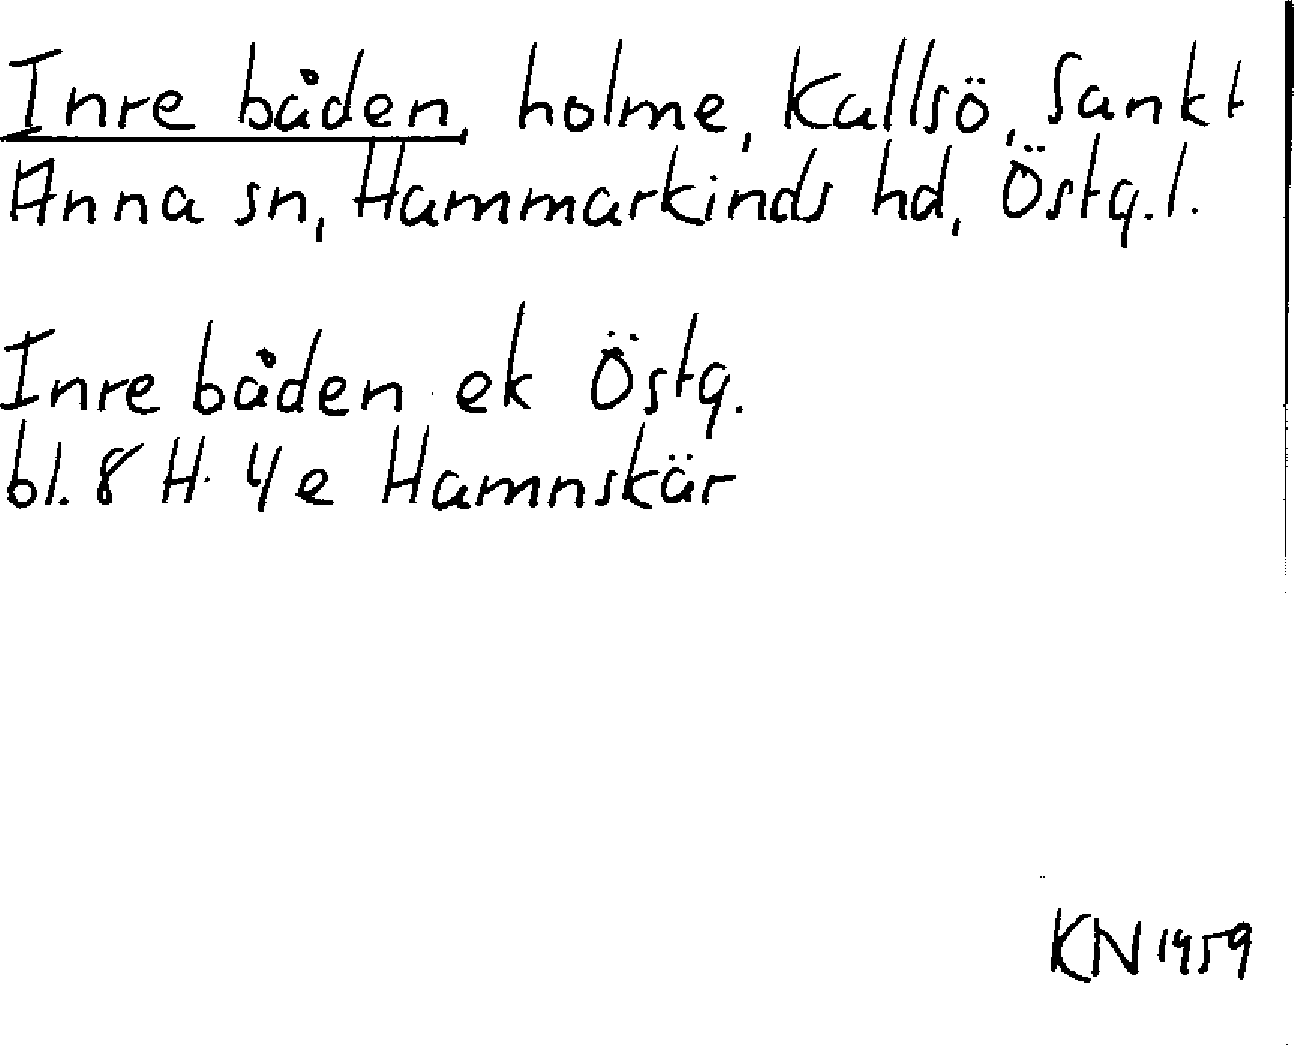 Inre båden, holme, Kallsö, Sankt
Anna sn, Hammarkinds hd, Östg.l.
Inre båden ek Östg.
bl. 8 H 4e Hamnskär
KN 1959